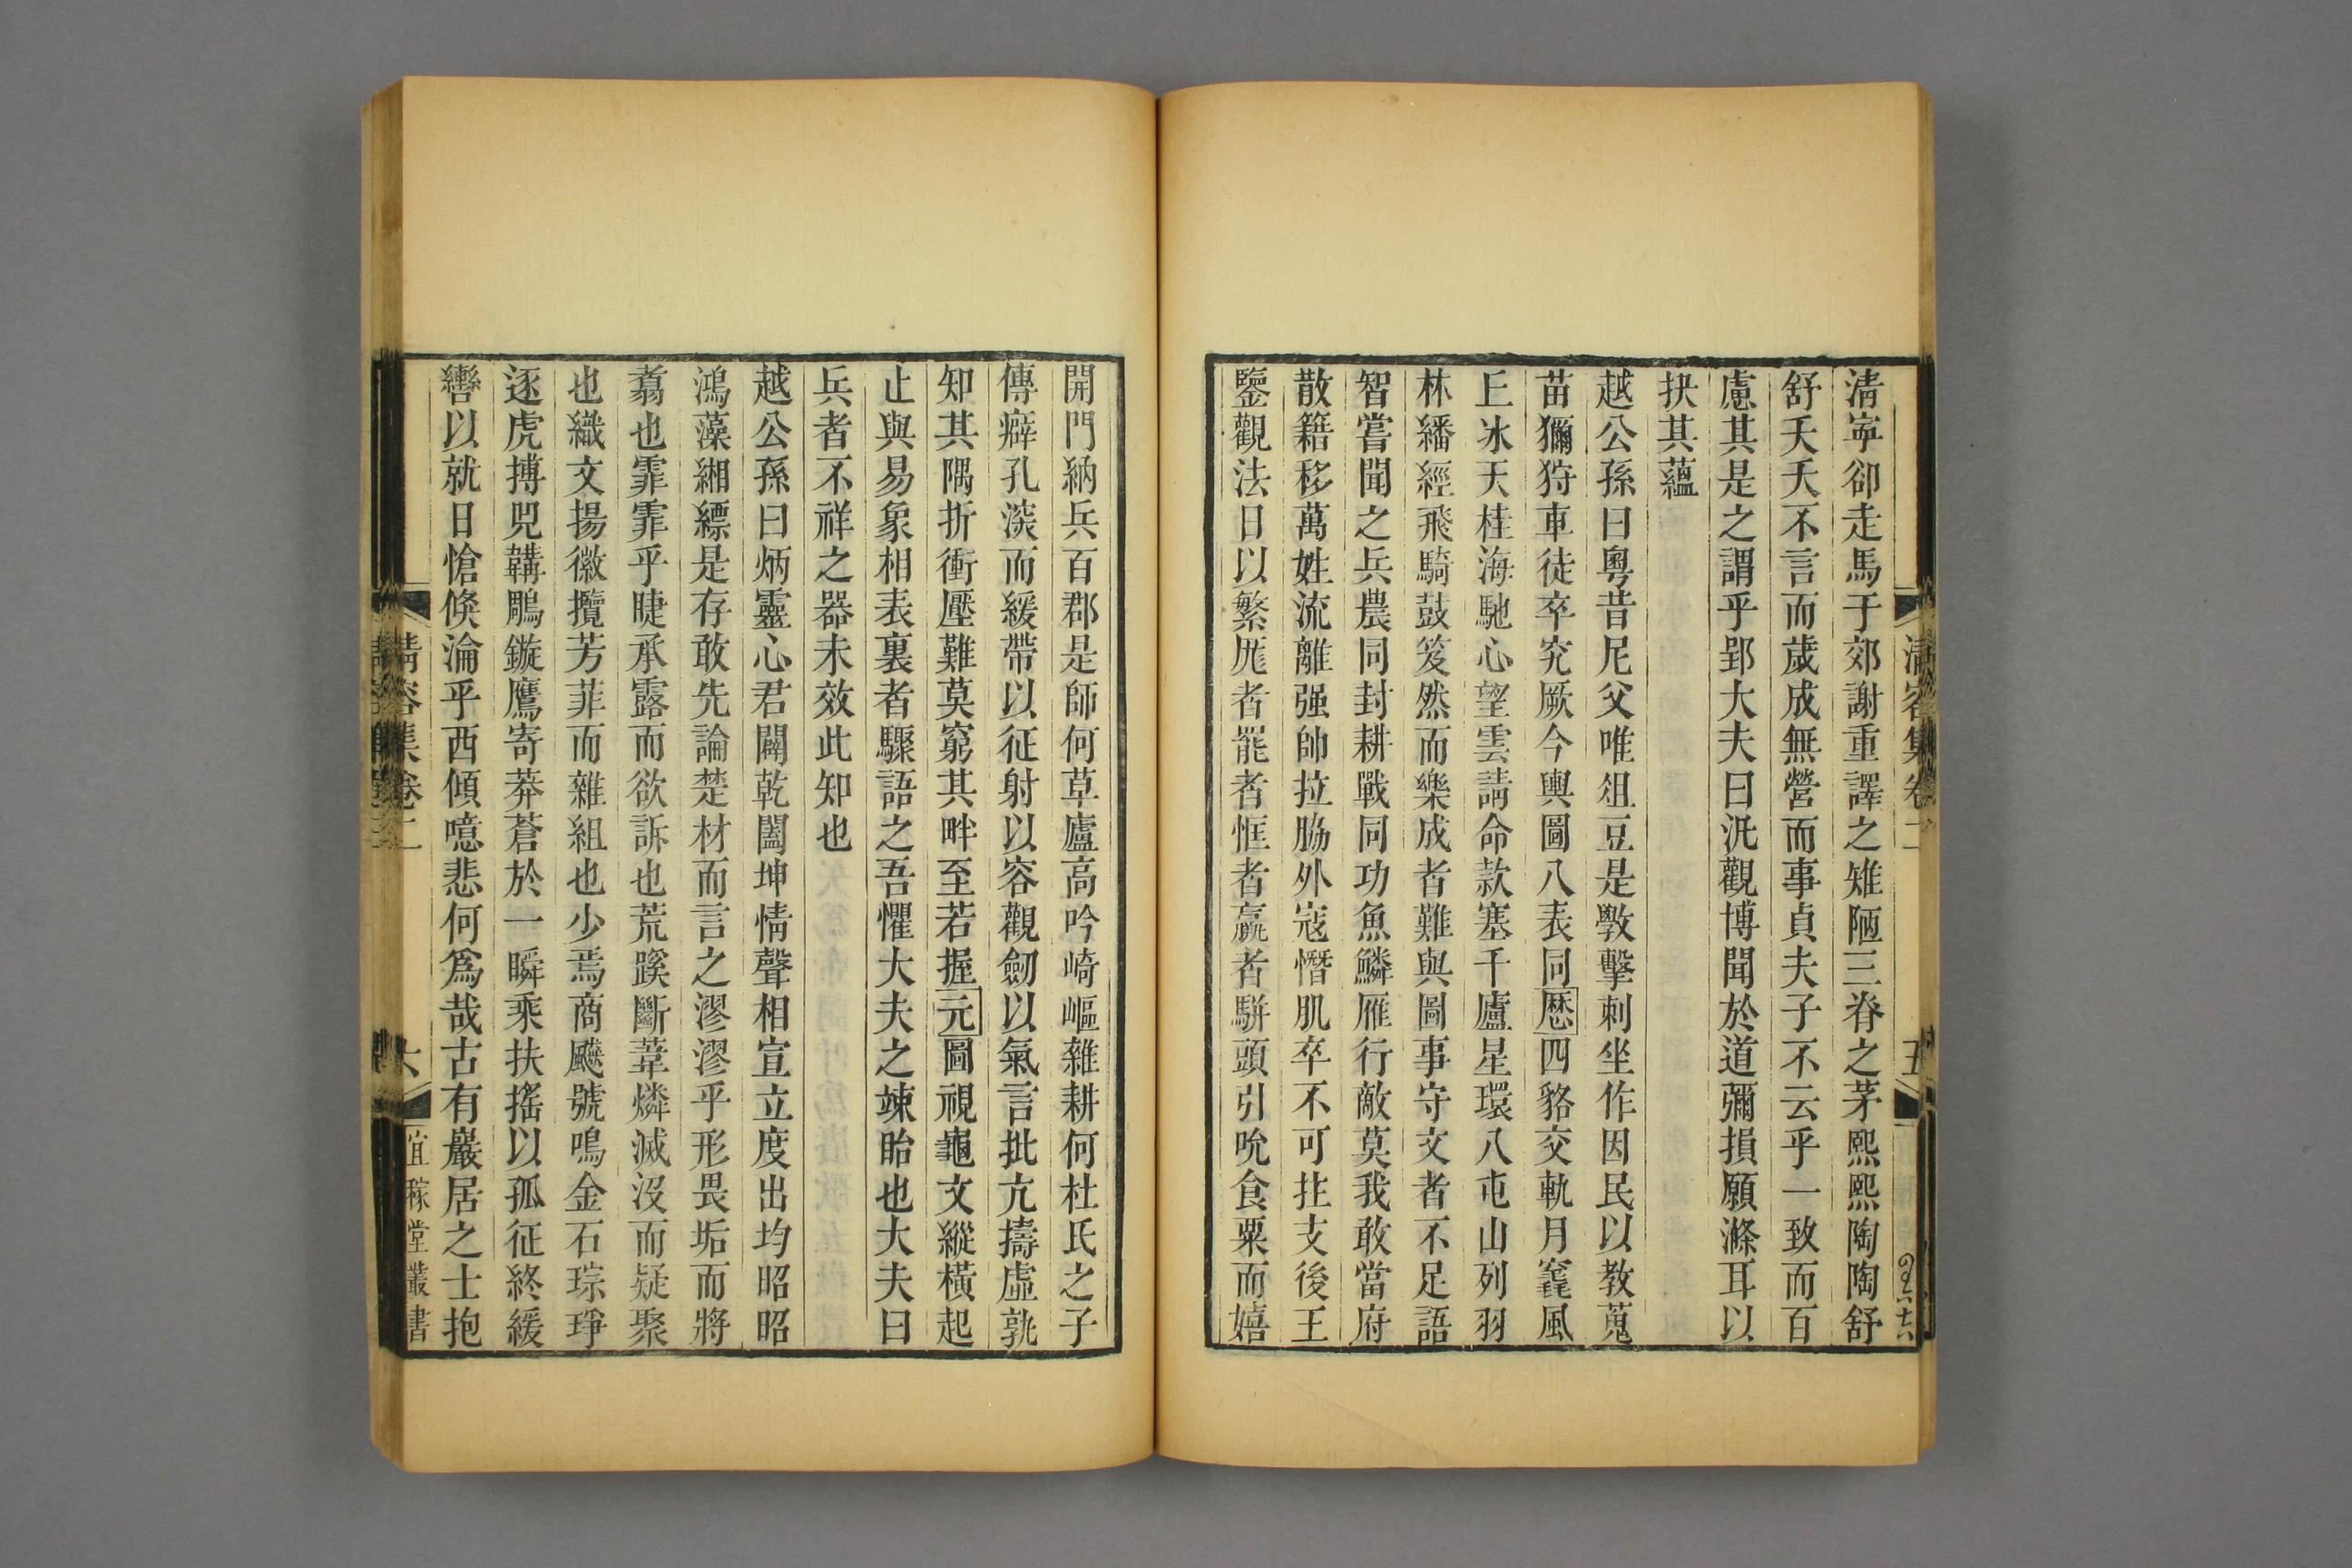 清寍卻走馬于郊謝重譯之雉陋三脊之茅熙熙陶陶舒
舒夭夭不言而歲成無營而事貞夫子不云乎一致而百
慮其是之謂乎郢大夫曰汎觀博聞於道彌損願滌耳以
抉其蘊
越公孫曰粵昔尼父唯俎豆是斅擊刺坐作因民以教蒐
苗獮狩車徒卒究厥今輿圖八表同厯四貉交軌月竁風
丘冰天桂海馳心望雲請命款塞千廬星環八屯山列羽
林繙經飛騎鼓笈然而樂成者難與圖事守文者不足語
智嘗聞之兵農同封耕戰同功魚鱗雁行敵莫我敢當府
散籍移萬姓流離强帥拉脇外寇憯肌卒不可拄支後王
鑒觀法日以繁尨者罷者恇者羸者駢頭引吭食粟而嬉
清容集卷二
五
開門納兵百郡是師何草廬高吟崎嶇雜耕何杜氏之子
傳癖孔㳫而緩帶以征射以容觀劒以氣言批亢擣虛孰
知其隅折衝壓難莫窮其畔至若握元圖視龜文縱橫起
止與易象相表裏者驟語之吾懼大夫之竦眙也大夫曰
兵者不祥之器未效此知也
越公孫曰炳靈心君闢乾闔坤情聲相宣立度出均昭昭
鴻藻緗縹是存敢先論楚材而言之漻漻乎形畏垢而將
翥也霏霏乎睫承露而欲訴也荒蹊斷葦燐滅沒而疑聚
也織文揚徽攬芳菲而雜組也少焉商飈號鳴金石琮琤
逐虎搏兕韝鵰鏇鷹寄莽蒼於一瞬乘扶搖以孤征終緩
轡以就日愴倏淪乎西傾噫悲何爲哉古有巖居之士抱
清容集卷二
六
宜稼堂叢書